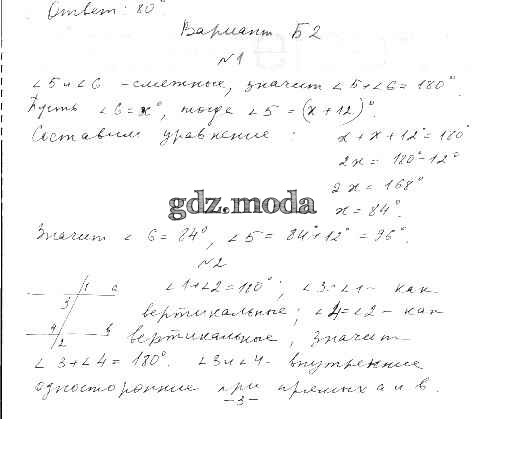 Ответ: 80°.
Вариант Б2
№1
∠5 и ∠6 - смежные, значит ∠5+∠6=180°.
Пусть ∠6=x°, тогда ∠5=(x+12)°.
Составим уравнение: x+x+12°=180°
2x = 180°-12°
2x = 168°
gdz.moda
x = 84°.
Значит ∠6=84°, ∠5=84°+12°=96°.
№2
1 a ∠1+∠2=180°, ∠3=∠1- как
3 вертикальные; ∠4=∠2- как
4 b вертикальные, значит
2
∠3+∠4=180°. ∠3 и ∠4- внутренние
односторонние при прямых a и в.
-3-